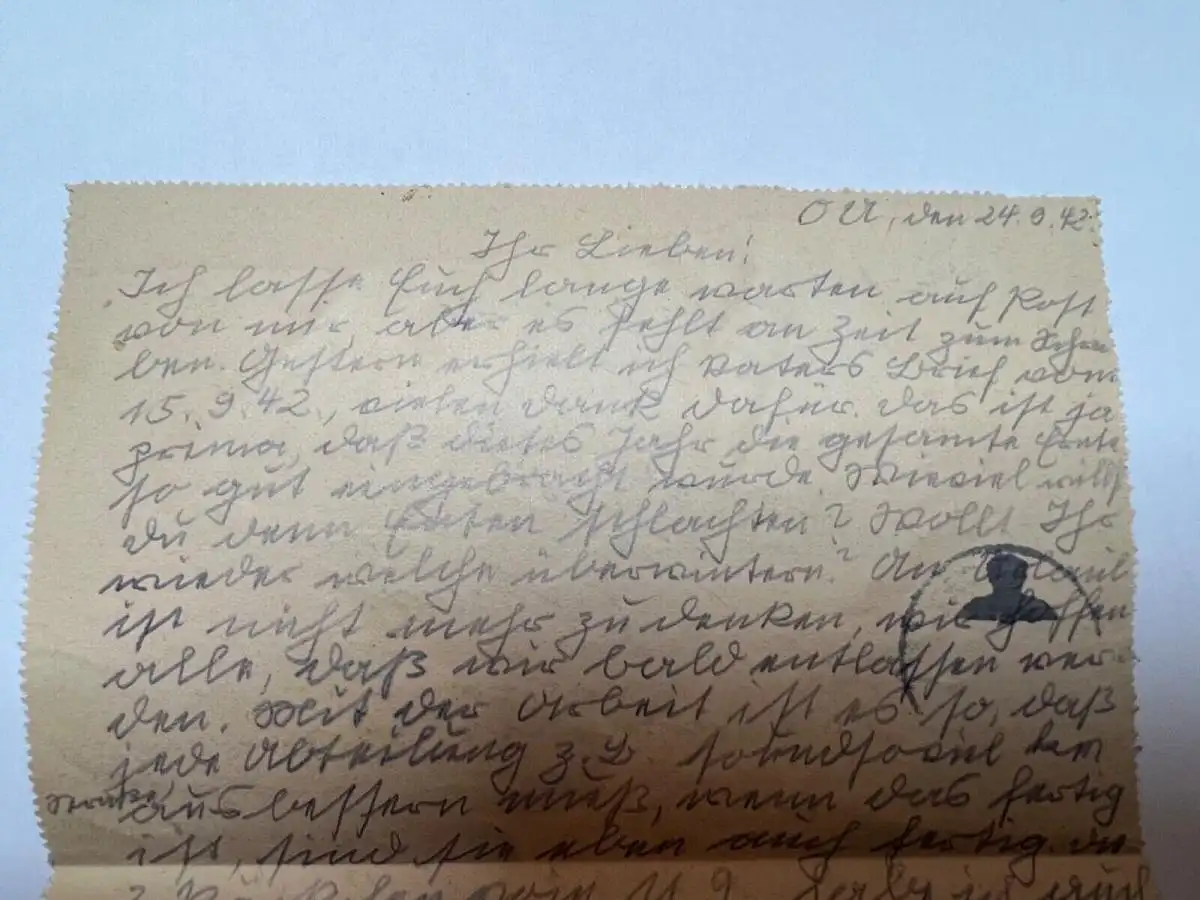 OU, den 24.9.42.
Ihr Lieben!
Ich lasse Euch lange warten auf Post
von mir, aber es fehlt an Zeit zum Schrei
ben. Gestern erhielt ich Vaters Brief vom
15.9.42., vielen Dank dafür. Das ist ja
prima, daß dieses Jahr die gesamte Ernte
so gut eingebracht wurde. Wieviel willst
Du denn Enten schlachten? Wollt Ihr
wieder welche überwintern? An Urlaub
ist nicht mehr zu denken, wir hoffen
alle, daß wir bald entlassen wer-
den. Mit der Arbeit ist es so, daß
jede Abteilung z.B. soundsoviel km
Straße ausbessern muß, wenn das fertig
ist, sind sie eben auch fertig. Die
2 Päckchen vom 11.9. habe ich auch